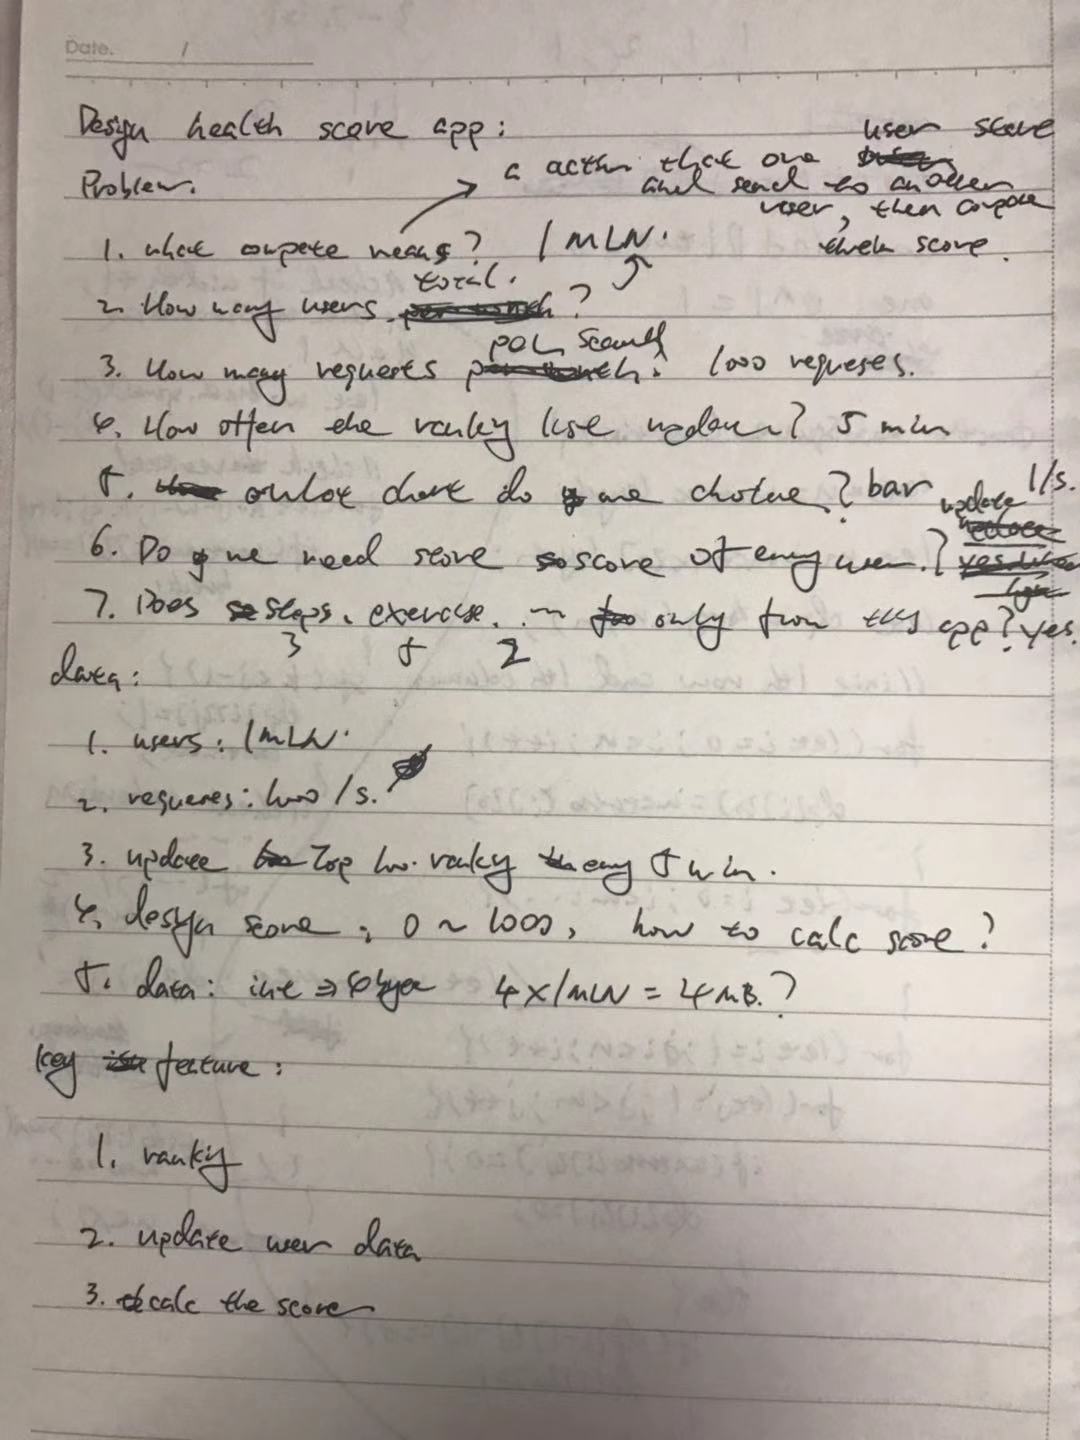 Date. /
Design health score app:
Problem.
a action that one user store
and send to another
user, then compete
their score.
1. what compete means? 1 MLN.
2. How many users total. ?
3. How many requests per second? 1000 requests.
4. How often the ranky list update? 5 min
5. chart do we ? bar
6. Do we need store score of every user.? update 1/s.
7. Does steps, exercise. ... only from this app? yes.
3 5 2
data:
1. users: 1 MLN.
2. requests: 1000 /s.
3. update Top ranky every 5 min.
4. design score: 0 ~ 1000, how to calc score?
5. data: int => 4 byte 4 x 1MLN = 4 MB.?
key feature:
1. ranky
2. update user data
3. calc the score